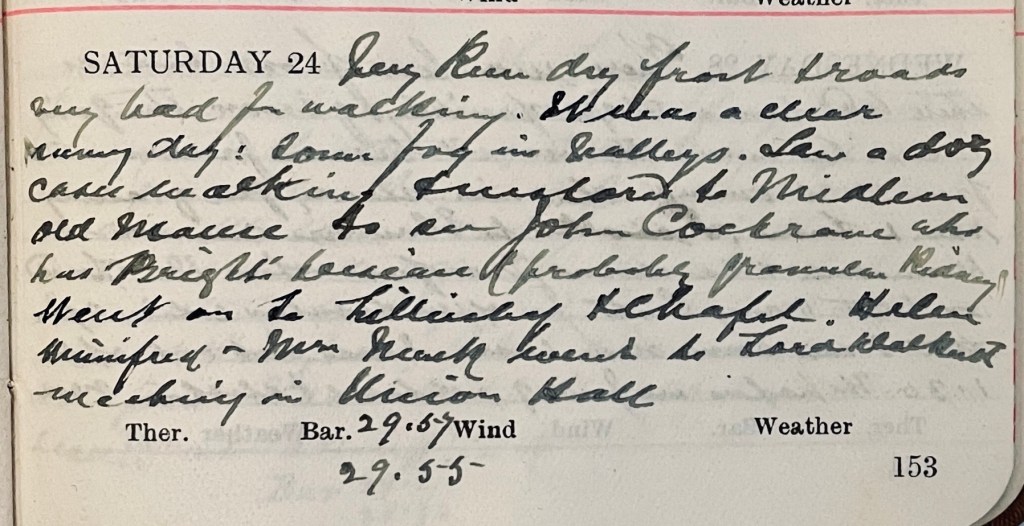 SATURDAY 24 Very keen dry frost & roads
very bad for walking. It was a clear
sunny day: some fog in valleys. Saw a dozen
cases walking & to Midlem
old Manse to see John Cockrane who
has Bright's Disease (probably granular Kidney)
Went on to Lilliesleaf & Chapel. Helen
Winnifred & Mrs went to Lord Dalkeith
meeting in Union Hall
Ther. Bar. 29.57 Wind Weather
29.55
153